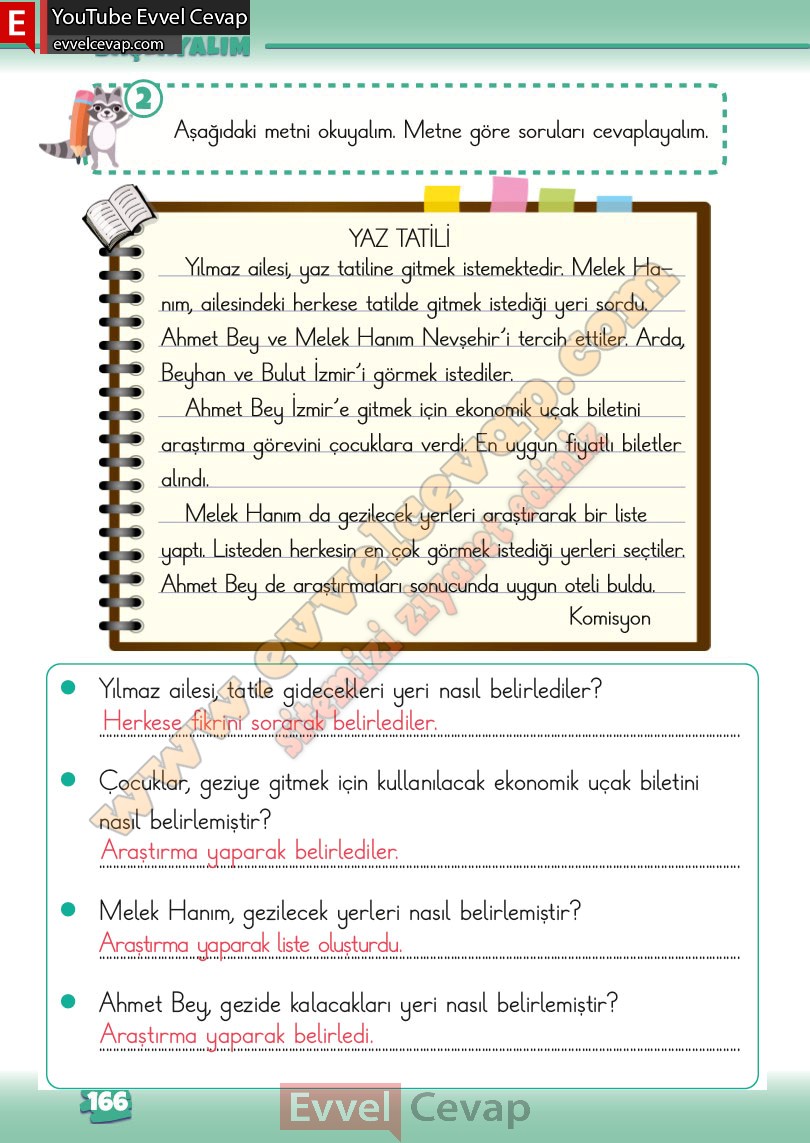 E
YouTube Evvel Cevap
evvelcevap.com
2
Aşağıdaki metni okuyalım. Metne göre soruları cevaplayalım.
YAZ TATİLİ
Yılmaz ailesi, yaz tatiline gitmek istemektedir. Melek Ha-
nım, ailesindeki herkese tatilde gitmek istediği yeri sordu.
Ahmet Bey ve Melek Hanım Nevşehir'i tercih ettiler. Arda,
Beyhan ve Bulut İzmir'i görmek istediler.
Ahmet Bey İzmir'e gitmek için ekonomik uçak biletini
araştırma görevini çocuklara verdi. En uygun fiyatlı biletler
alındı.
Melek Hanım da gezilecek yerleri araştırarak bir liste
yaptı. Listeden herkesin en çok görmek istediği yerleri seçtiler.
Ahmet Bey de araştırmaları sonucunda uygun oteli buldu.
Komisyon
www.evvelcevap.com
sitemizi ziyaret ediniz
Yılmaz ailesi, tatile gidecekleri yeri nasıl belirlediler?
Herkese fikrini sorarak belirlediler.
Çocuklar, geziye gitmek için kullanılacak ekonomik uçak biletini
nasıl belirlemiştir?
Araştırma yaparak belirlediler.
Melek Hanım, gezilecek yerleri nasıl belirlemiştir?
Araştırma yaparak liste oluşturdu.
Ahmet Bey, gezide kalacakları yeri nasıl belirlemiştir?
Araştırma yaparak belirledi.
166
Evvel Cevap